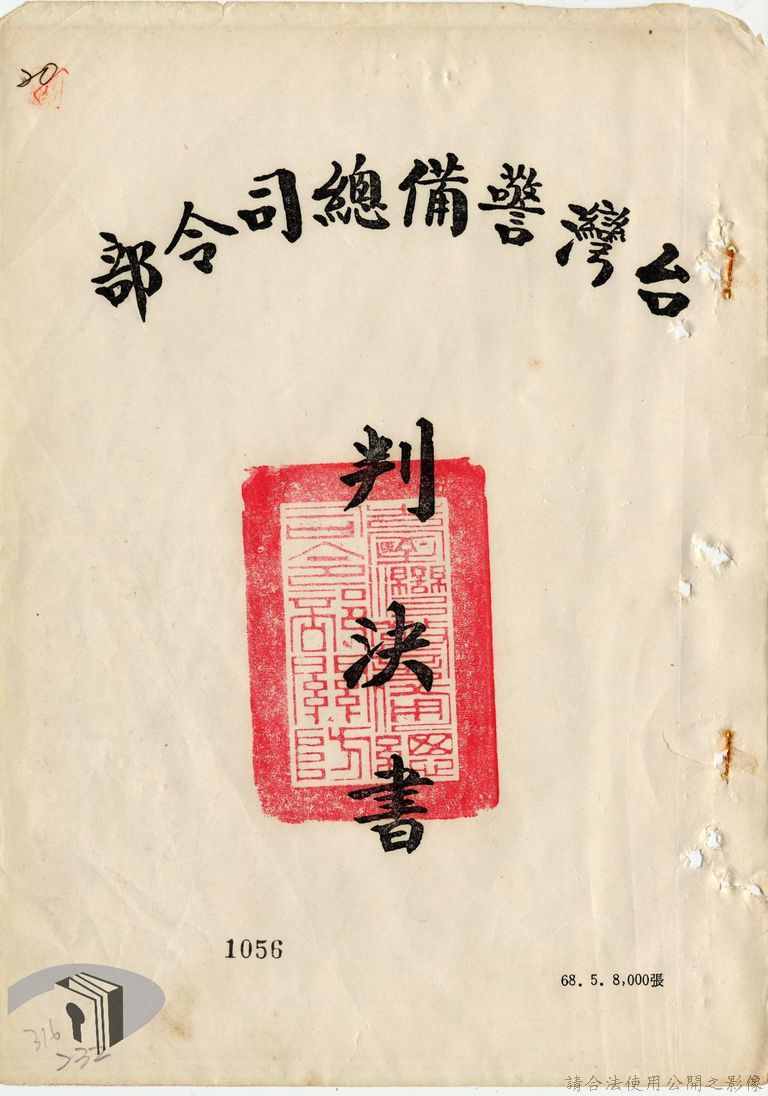 20
台灣警備總司令部
判決書
臺灣警備總
司令部關防
1056
68. 5. 8,000張
316
232
請合法使用公開之影像